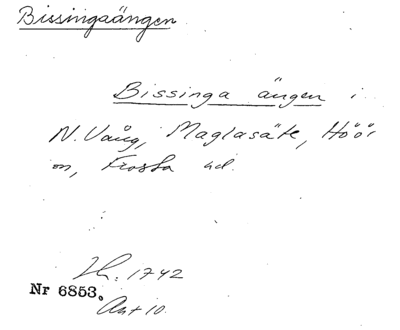 Bissingaängen
Bissinga ängen i
N. Vång, Maglasäte, Höör
sn, Frosta hd.
Lh. 1742
Nr 6853.
Akt 10.